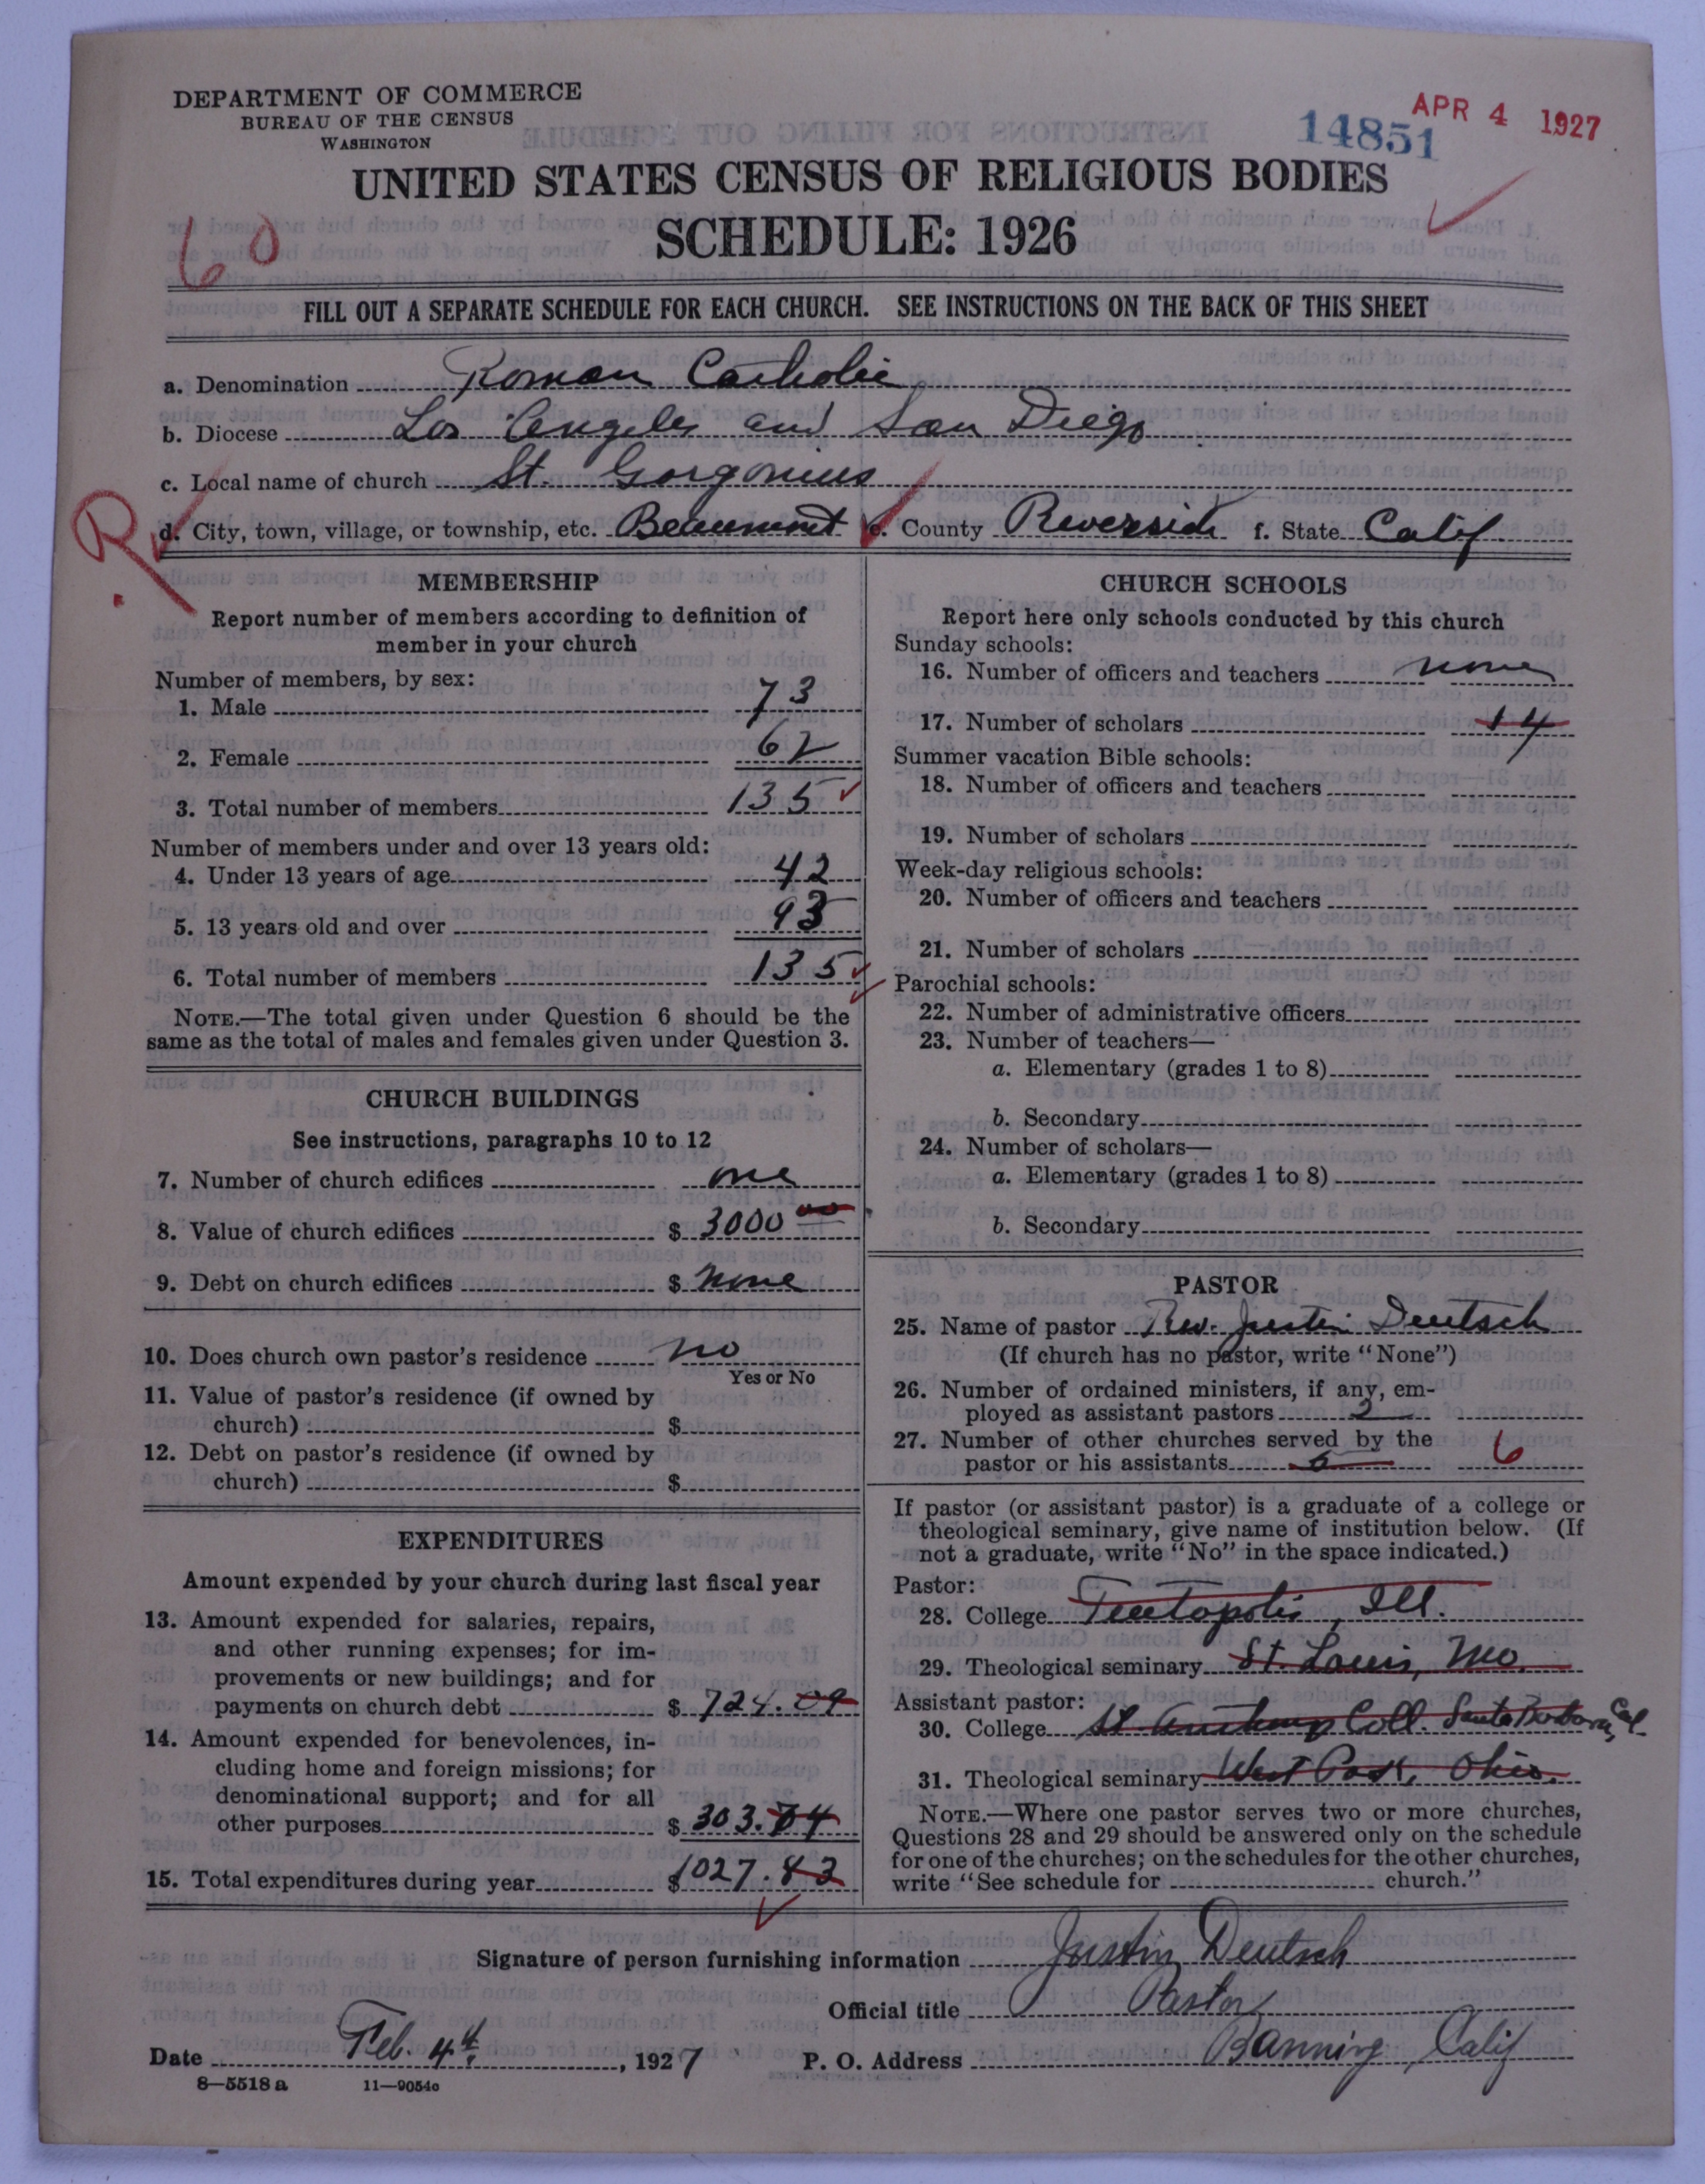 DEPARTMENT OF COMMERCE
BUREAU OF THE CENSUS
WASHINGTON
14851
APR 4 1927
UNITED STATES CENSUS OF RELIGIOUS BODIES
SCHEDULE: 1926
60
FILL OUT A SEPARATE SCHEDULE FOR EACH CHURCH. SEE INSTRUCTIONS ON THE BACK OF THIS SHEET
a. Denomination Roman Catholic
b. Diocese Los Angeles and San Diego
c. Local name of church St. Gorgonius
R
d. City, town, village, or township, etc. Beaumont e. County Riverside f. State Calif
MEMBERSHIP
Report number of members according to definition of
member in your church
Number of members, by sex:
1. Male 73
2. Female 62
3. Total number of members 135
Number of members under and over 13 years old:
4. Under 13 years of age 42
5. 13 years old and over 93
6. Total number of members 135
NOTE.—The total given under Question 6 should be the
same as the total of males and females given under Question 3.
CHURCH BUILDINGS
See instructions, paragraphs 10 to 12
7. Number of church edifices one
8. Value of church edifices $ 3000 00
9. Debt on church edifices $ None
10. Does church own pastor's residence No
Yes or No
11. Value of pastor's residence (if owned by
church) $
12. Debt on pastor's residence (if owned by
church) $
EXPENDITURES
Amount expended by your church during last fiscal year
13. Amount expended for salaries, repairs,
and other running expenses; for im-
provements or new buildings; and for
payments on church debt $ 724.09
14. Amount expended for benevolences, in-
cluding home and foreign missions; for
denominational support; and for all
other purposes $ 303.74
15. Total expenditures during year $ 1027.83
CHURCH SCHOOLS
Report here only schools conducted by this church
Sunday schools:
16. Number of officers and teachers none
17. Number of scholars 14
Summer vacation Bible schools:
18. Number of officers and teachers
19. Number of scholars
Week-day religious schools:
20. Number of officers and teachers
21. Number of scholars
Parochial schools:
22. Number of administrative officers
23. Number of teachers—
a. Elementary (grades 1 to 8)
b. Secondary
24. Number of scholars—
a. Elementary (grades 1 to 8)
b. Secondary
PASTOR
25. Name of pastor Rev. Justin Deutsch
(If church has no pastor, write "None")
26. Number of ordained ministers, if any, em-
ployed as assistant pastors 2
27. Number of other churches served by the
pastor or his assistants 6 6
If pastor (or assistant pastor) is a graduate of a college or
theological seminary, give name of institution below. (If
not a graduate, write "No" in the space indicated.)
Pastor:
28. College Teutopolis, Ill.
29. Theological seminary St. Louis, Mo.
Assistant pastor:
30. College St. Anthony Coll. Santa Barbara, Cal.
31. Theological seminary West Park, Ohio.
NOTE.—Where one pastor serves two or more churches,
Questions 28 and 29 should be answered only on the schedule
for one of the churches; on the schedules for the other churches,
write "See schedule for church."
Signature of person furnishing information Justin Deutsch
Official title Pastor
Date Feb. 4th, 1927 P. O. Address Banning, Calif
8—5518 a 11—9054c